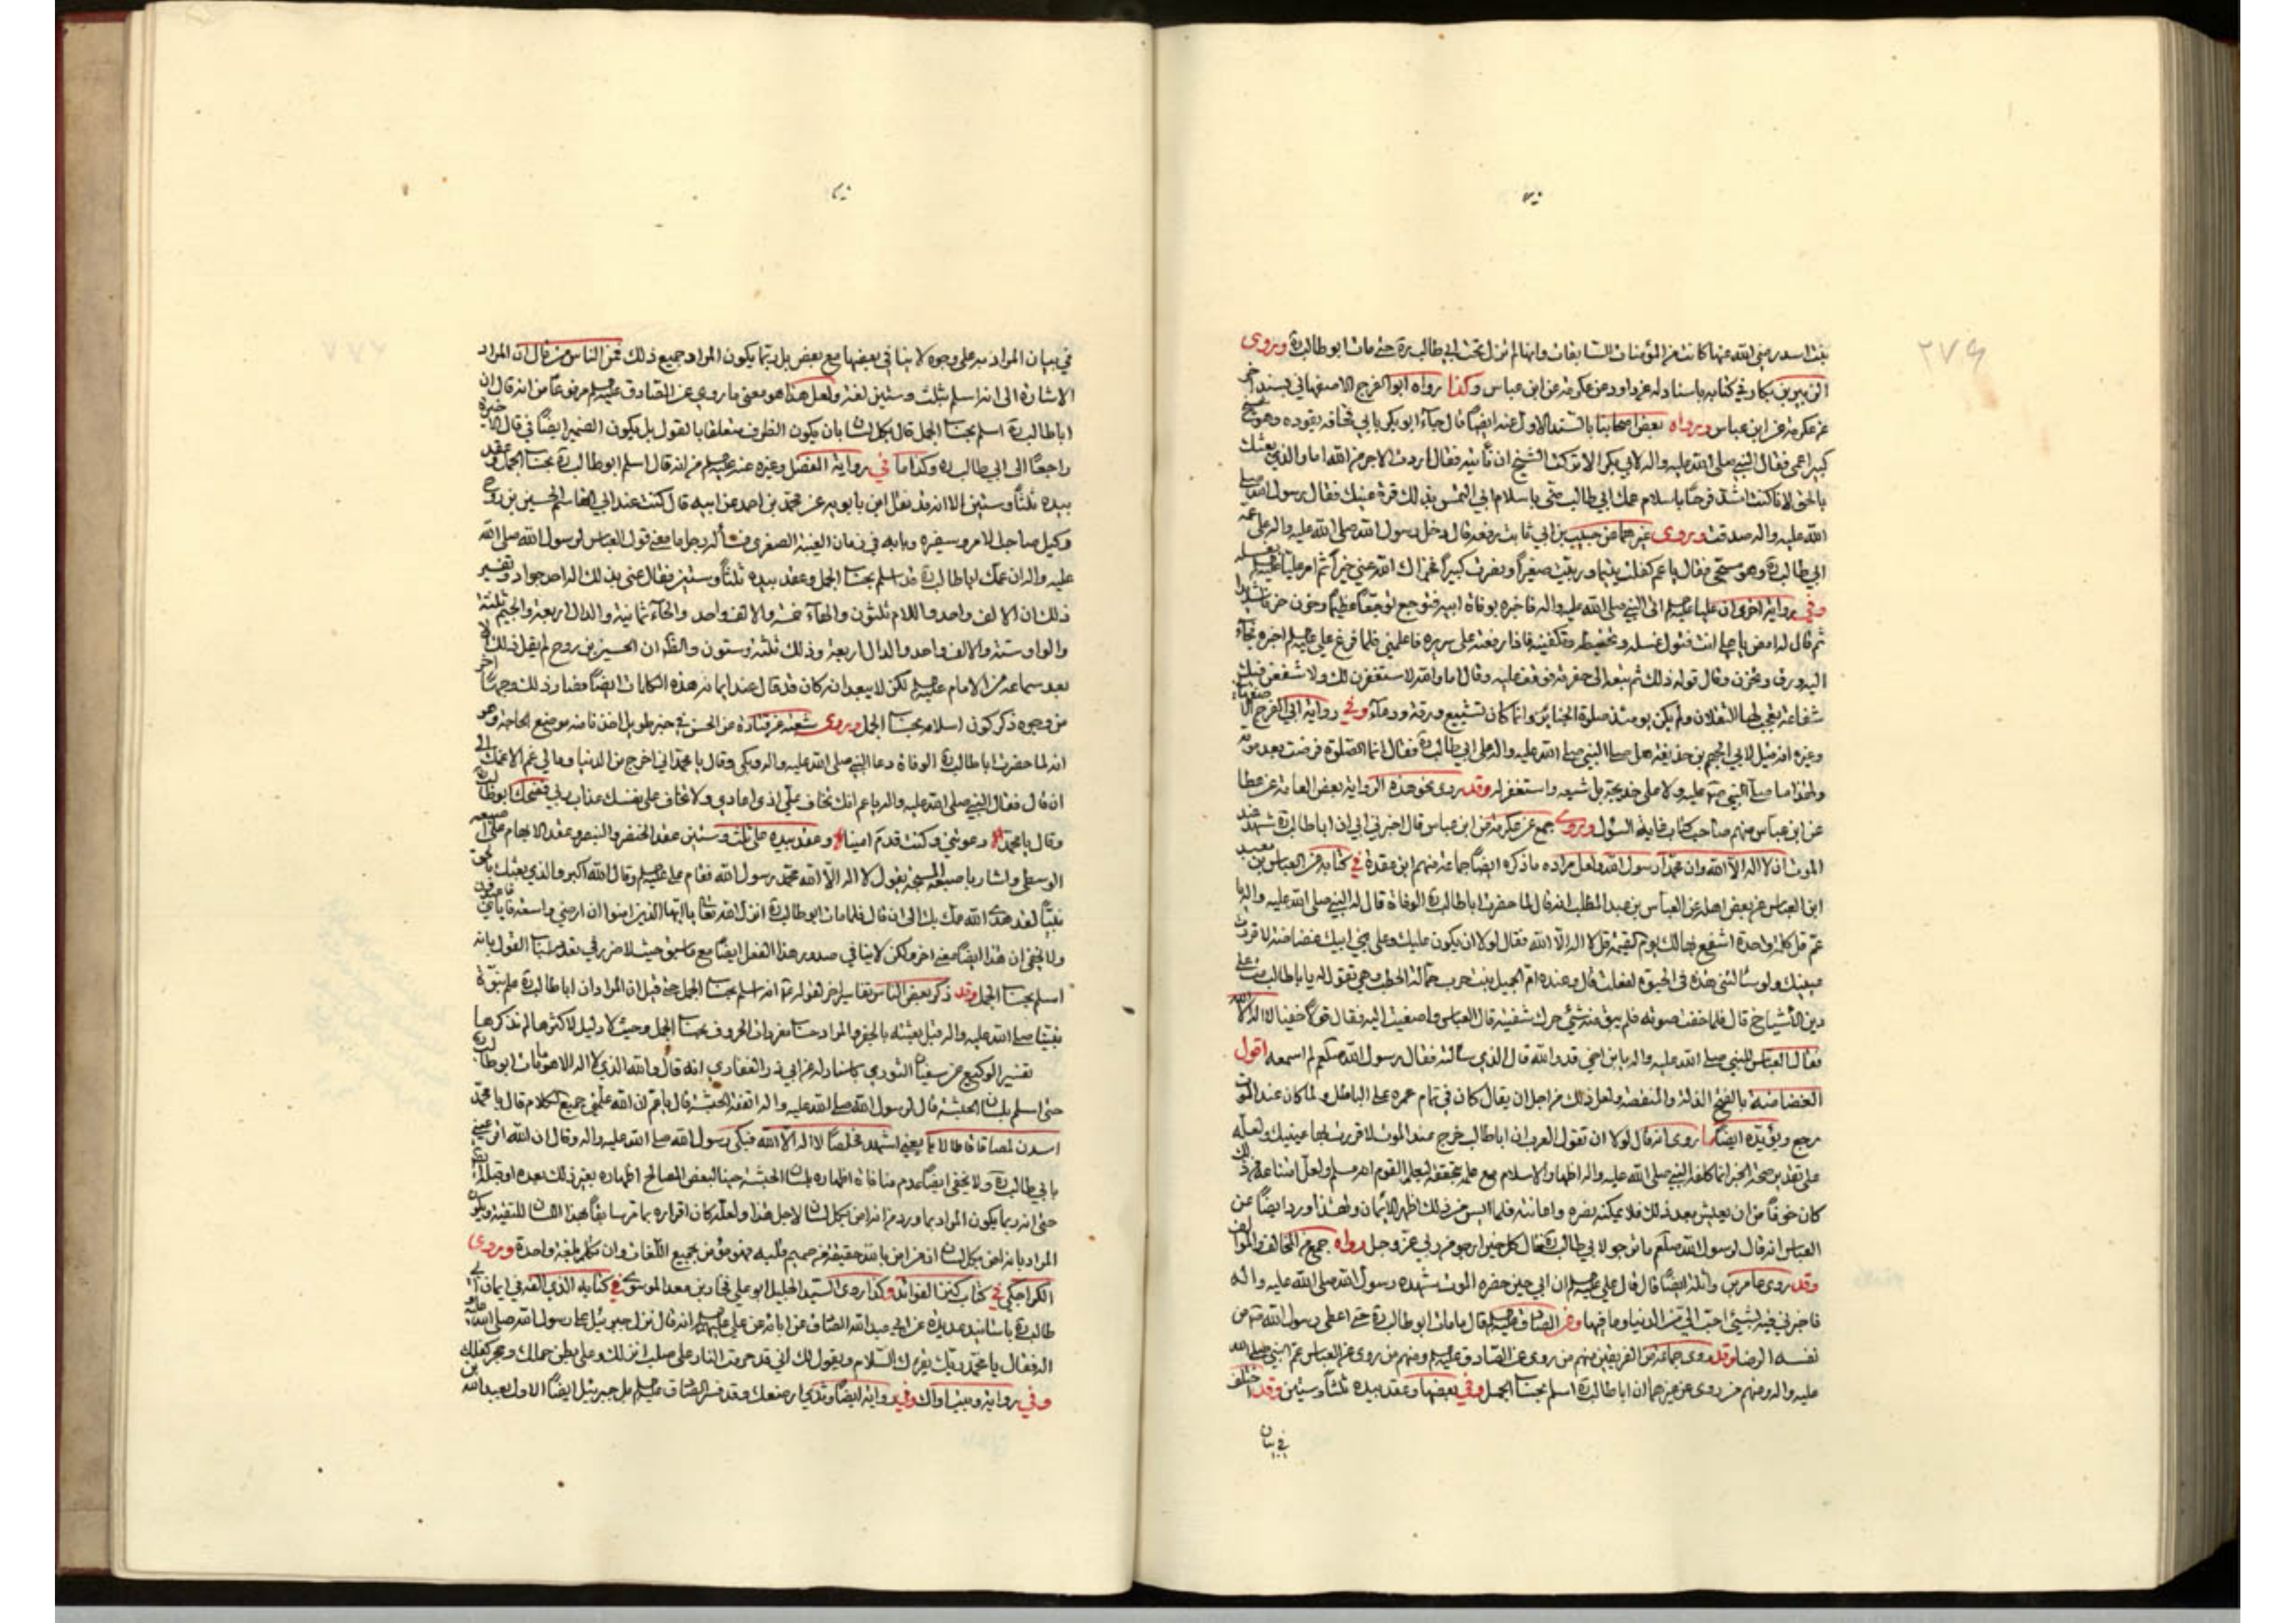 بنت اسد رضي الله عنها كانت من المؤمنات السابقات وانها لم تزل تحت ابي طالب ره حتى مات ابو طالب ره وروى
الزبير بن بكار في كتابه باسناد له عن داود عن عكرمة عن ابن عباس وكذا رواه ابو الفرج الاصفهاني بسند اخر
عن عكرمة عن ابن عباس ورواه بعض اصحابنا بالسند الاول عنه ايضا قال جاء ابو بكر بابي قحافة يقوده وهو شيخ
كبير اعمى فقال النبي صلى الله عليه واله لابي بكر الا تركت الشيخ ان نأتيه فقال اردت الاجر من الله اما والذي بعثك
بالحق لانا كنت اشد فرحا باسلام عمك ابي طالب مني باسلام ابي التمس بذلك قرة عينك فقال رسول الله صلى
الله عليه واله صدقت وروى غيرهما عن حبيب بن ابي ثابت رفعه قال دخل رسول الله صلى الله عليه واله على عمه
ابي طالب ره وهو مسجى فقال يا عم كفلت يتيما وربيت صغيرا ونصرت كبيرا فجزاك الله عني خيرا ثم امر عليا بغسله
وفي رواية اخرى ان عليا اتى النبي صلى الله عليه واله فاخبره بوفاة ابيه فتوجع توجعا عظيما وحزن حزنا شديدا
ثم قال له امض يا علي انت فتول غسله وتحنيطه وتكفينه فاذا رفعته على سريره فاعلمني فلما فرغ علي اخبره فجاء
اليه ورق وتحزن وقال قوله ذلك ثم تبعه الى حفرته فوقف عليه وقال اما والله لاستغفرن لك ولاشفعن فيك
شفاعة يعجب لها الثقلان ولم يكن يومئذ صلوة الجنائز وانما كان تشييع ورقة ودعاء وفي رواية ابي الفرج الاصفهاني
وغيره انه قيل لابي الجهم بن حذيفة هل صلى النبي صلى الله عليه واله على ابي طالب ره فقال انما الصلوة فرضت بعد موته
ولهذا ما صلى النبي عليه ولا على خديجة بل شيعه واستغفر له وقد روى نحو هذه الرواية بعض العامة عن عطا
عن ابن عباس منهم صاحب كتاب غاية السؤل وروى جمع عن عكرمة عن ابن عباس قال اخبرني ابي ان ابا طالب ره شهد عند
الموت ان لا اله الا الله وان محمدا رسول الله ولعل مراده ما ذكره ايضا جماعة منهم ابن عقدة في كتابه عن العباس بن معبد
ابن العباس عن بعض اهله عن العباس بن عبد المطلب انه قال لما حضرت ابا طالب ره الوفاة قال له النبي صلى الله عليه واله يا
عم قل كلمة واحدة اشفع بها لك يوم القيمة قل لا اله الا الله فقال لولا ان يكون عليك وعلى بني ابيك غضاضة لاقررت
بعينيك ولو سألتني هذه في الحيوة لفعلت قال وعنده ام الجميل بنت حرب حمالة الحطب وهي تقول له يا ابا طالب مت على
دين الأشياخ قال فلما خفت صوته فلم يبق منه شيء حرك شفتيه قال العباس واصغيت اليه فقال قولا خفيا لا اله الا الله
فقال العباس للنبي صلى الله عليه واله يا بن اخي قد والله قال الذي سألته فقال رسول الله صلعم لم اسمعه اقول
الغضاضة بالفتح الذلة والمنقصة ولعل ذلك من اجل ان يقال كان في تمام عمره على الباطل ولما كان عند الموت
رجع ويؤيده ايضا ما روى انه قال لولا ان تقول العرب ان ابا طالب خرج عند الموت لاقررت بها عينيك ولعله
على تقدير صحة الخبر انما كلفه النبي صلى الله عليه واله اظهار الاسلام مع علمه بتحققه ليعلم القوم انه مسلم ولعل امتناعه من ذلك
كان خوفا من ان يعيش بعد ذلك فلا يمكنه نصره واعانته فلما ايس من ذلك اظهر الايمان ولهذا ورد ايضا عن
العباس انه قال لرسول الله صلعم ما ترجو لابي طالب ره فقال كل خير ارجو من ربي عز وجل رواه جمع من المخالف والموالف
وقد روى عامر بن واثلة ايضا قال قال علي ان ابي حين حضره الموت شهده رسول الله صلى الله عليه واله
فاخبرني فيه لشيئ احب الي من الدنيا وما فيها وعن الصادق قال ما مات ابو طالب ره حتى اعطى رسول الله من
نفسه الرضا وقد روى جماعة من الفريقين منهم من روى عن الصادق ومنهم من روى عن العباس عم النبي صلى الله
عليه واله ومنهم من روى عن غيرهما ان ابا طالب ره اسلم بحساب الجمل وفي بعضها وعقد بيده ثلثا وستين وقد اختلف
في بيان
في بيان المراد به على وجوه لا ينافي بعضها مع بعض بل ربما يكون المراد جميع ذلك فمن الناس من قال ان المراد
الاشارة الى انه اسلم بثلث وستين لغة ولعل هذا هو معنى ما روي عن الصادق مرفوعا من انه قال ان
ابا طالب ره اسلم بحساب الجمل قال بكل لسان بان يكون الظرف متعلقا بالقول بل يكون الضمير ايضا في قال الاخيرة
راجعا الى ابي طالب ره وكذا ما في رواية المفضل وغيره عنه من انه قال اسلم ابو طالب ره بحساب الجمل وعقد
بيده ثلثا وستين الا انه قد نقل ابن بابويه عن محمد بن احمد عن ابيه قال كنت عند ابي القاسم الحسين بن روح
وكيل صاحب الامر وسفيره وبابه في زمان الغيبة الصغرى فسأله رجل ما معنى قول العباس لرسول الله صلى الله
عليه واله ان عمك ابا طالب ره قد اسلم بحساب الجمل وعقد بيده ثلثا وستين فقال عنى بذلك اله احد جواد وتفسير
ذلك ان الالف واحد واللام ثلثون والهاء خمسة والالف واحد والحاء ثمانية والدال اربعة والجيم ثلثة
والواو ستة والالف واحد والدال اربعة وذلك ثلثة وستون والظاهر ان الحسين بن روح لم يقل ذلك الا
بعد سماعه من الامام لكن لا يبعد انه كان قد قال عند ايمانه هذه الكلمات ايضا فصار ذلك وجها اخر
من وجوه ذكر كون اسلامه بحساب الجمل وروى شعبة عن قتادة عن الحسن في خبر طويل اخذنا منه موضع الحاجة وهو
انه لما حضرت ابا طالب ره الوفاة دعا النبي صلى الله عليه واله وبكى وقال يا محمد اني اخرج من الدنيا وما لي غم الا غمك الى
ان قال فقال النبي صلى الله عليه واله يا عم انك تخاف علي اذى اعادي ولا تخاف على نفسك عذاب ربي فضحك ابو طالب ره
وقال يا محمد دعوتني وكنت قدم امينا وعقد بيده على ثلث وستين عقد الخنصر والبنصر وعقد الابهام على اصبعه
الوسطى واشار باصبعه المسبحة يقول لا اله الا الله محمد رسول الله فقام علي وقال الله اكبر والذي بعثك بالحق
نبيا لقد هدى الله عمك بك الى ان قال فلما مات ابو طالب ره انزل الله تعا يا ايها الذين امنوا ان ارضي واسعة فاياي فاعبدون
ولا يخفى ان هذا ايضا معنى اخر ولكن لا ينافي صدور هذا الفعل ايضا مع ما سبق حيث لا ضرر في القول بانه
اسلم بحساب الجمل وقد ذكر بعض الناس تفاسير اخر لقوله انه اسلم بحساب الجمل حتى قيل ان المراد ان ابا طالب ره علم نبوة
نبينا صلى الله عليه واله قبل بعثته بالجفر والمراد حساب مفردات الحروف بحساب الجمل وحيث لا دليل لاكثرها لم نذكرها
تفسير الوكيع عن سفيان الثوري باسناد له عن ابي ذر الغفاري انه قال والله الذي لا اله الا هو ما مات ابو طالب ره
حتى اسلم بلسان الحبشة قال لرسول الله صلى الله عليه واله اتفقه الحبشة قال يا عم ان الله علمني جميع الكلام قال يا محمد
اسدن لمصاقا قاطالاها يعني اشهد مخلصا لا اله الا الله فبكى رسول الله صلى الله عليه واله وقال ان الله اقر عيني
بابي طالب ره ولا يخفى ايضا عدم منافاة اظهاره بلسان الحبشة حينا لبعض المصالح اظهاره بغير ذلك بعده او قبله
حتى انه ربما يكون المراد بما ورد من انه امن بكل لسان لاجل هذا ولعله كان اقراره سابقا بهذا اللسان للتقية ويكون
المراد بانه امن بكل لسان انه من امن بالله حقيقة من صميم قلبه فهو مؤمن بجميع اللغات وان تكلم بلغة واحدة وروى
الكراجكي في كتاب كنز الفوائد وكذا روى السيد الجليل ابو علي فخار بن معد الموسوي في كتابه الذي الفه في ايمان ابي
طالب ره باسانيد عديدة عن ابي عبد الله الصادق عن ابائه عن علي انه قال نزل جبرئيل على رسول الله صلى الله عليه و
اله فقال يا محمد ربك يقرئك السلام ويقول لك اني قد حرمت النار على صلب انزلك وعلى بطن حملك وحجر كفلك
وفي رواية وبيت اواك وفي رواية ايضا وثدي ارضعك وقد فسر الصادق بل جبرئيل ايضا الاول بعبد الله بن